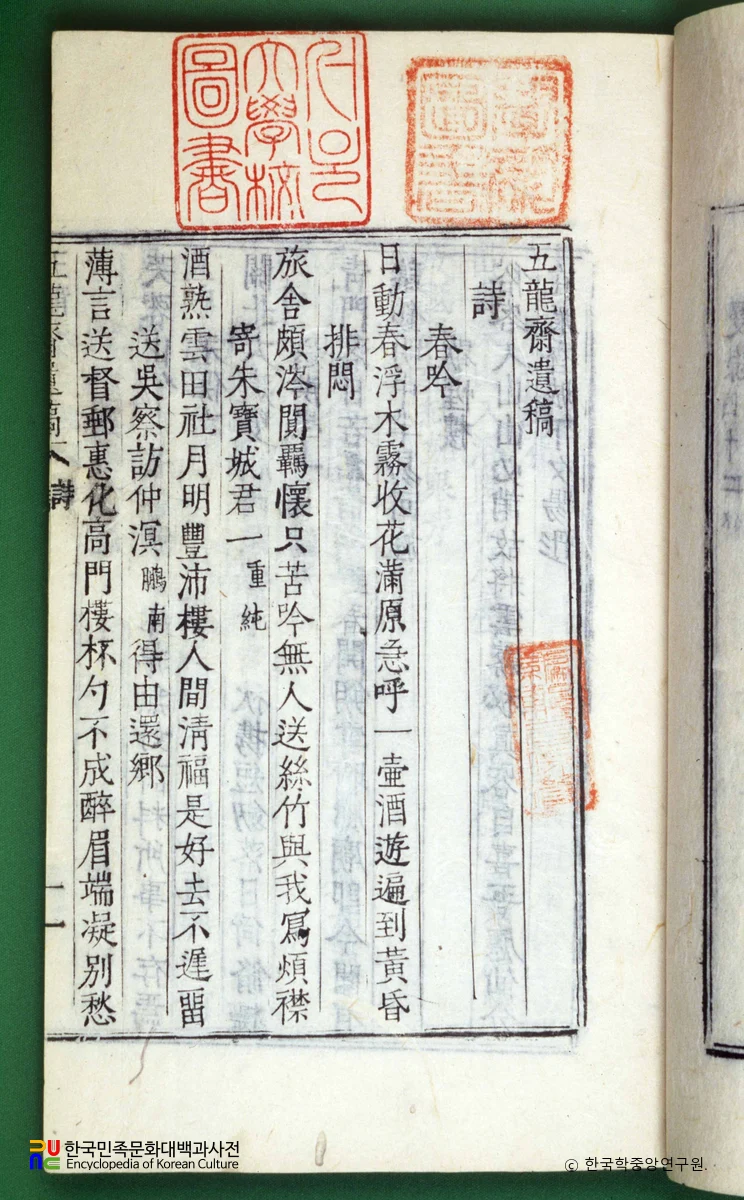 五龍齋遺稿
詩
春吟
日動春浮木霧收花滿原急呼一壷酒遊遍到黃昏
排悶
旅舍頗涔閴羈懷只苦吟無人送絲竹與我寫煩襟
寄朱寶城君一重純
酒熟雲田社月明豐沛樓人間淸福是好去不遲留
送吳察訪仲溟鵬南得由還鄉
薄言送督郵惠化高門樓杯勺不成醉眉端凝別愁
五龍齋遺稿 詩 一
大學校
圖書
한국민족문화대백과사전
Encyclopedia of Korean Culture
© 한국학중앙연구원.